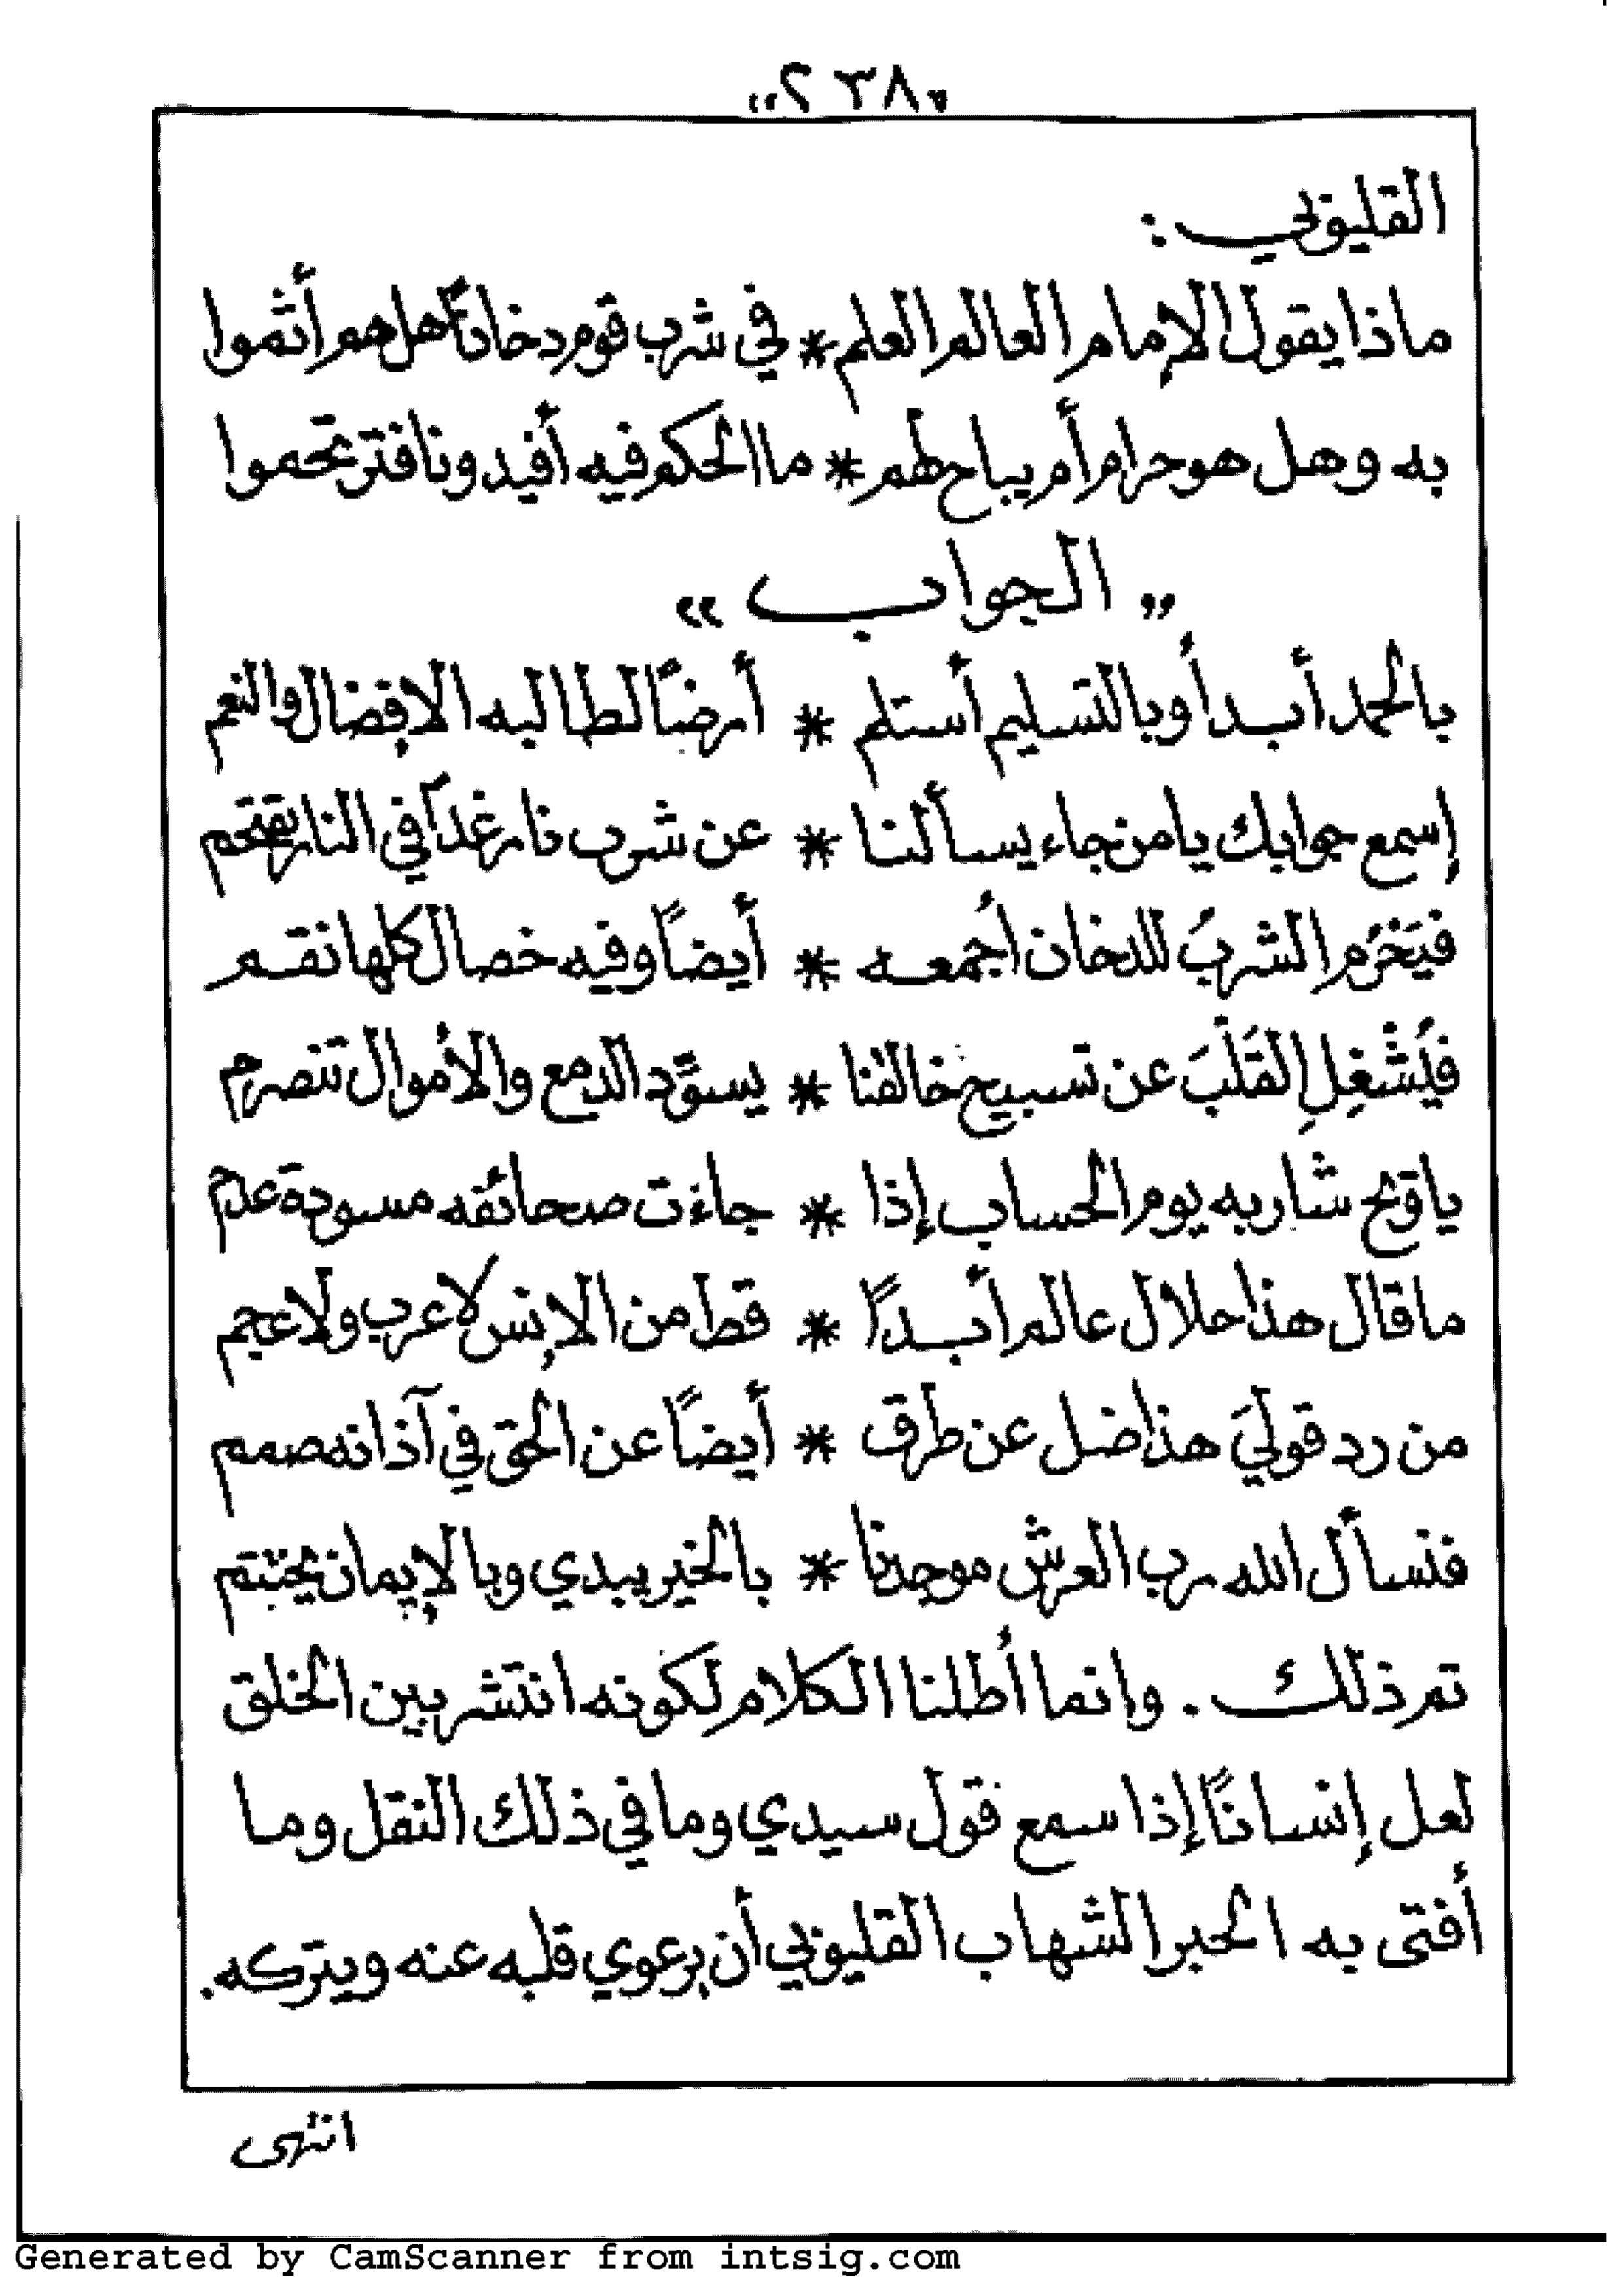 «٢٣٨»
القليوبي :
ماذا يقول الإمام العالم العلم * في شرب قوم دخاناً هل هم أثموا
به وهل هو حرام أم يباح لهم * ما الحكم فيه أفيدونا فترتحموا
» الجواب «
بالحمد أبدأُ وبالتسليم أستلم * أرضًا لطالبه الافضال والنعم
إسمع جوابك يا من جاء يسألنا * عن شرب نار غداً في النار يقتحم
فيَحْرُم الشربُ للدخان أجمعه * أيضًا وفيه خصال كلها نقم
فيُشْغِلِ القَلْبَ عن تسبيح خالقنا * يسوّد الدمع والأموال تنصرم
يا وَيْح شاربه يوم الحساب إذا * جاءت صحائفه مسودة عدم
ما قال هذا حلال عالم أبدًا * قط من الإنس لا عرب ولا عجم
من رد قوليَ هذا ضل عن طرق * أيضًا عن الحق في آذانه صمم
فنسأل الله رب العرش موجدنا * بالخير يبدي وبالإيمان يختتم
تم ذلك . وانما أطلنا الكلام لكونه انتشر بين الخلق
لعل إنسانًا إذا سمع قول سيدي وما في ذلك النقل وما
أفتى به الحبر الشهاب القليوبي أن يرعوي قلبه عنه ويتركه.
انتهى
Generated by CamScanner from intsig.com